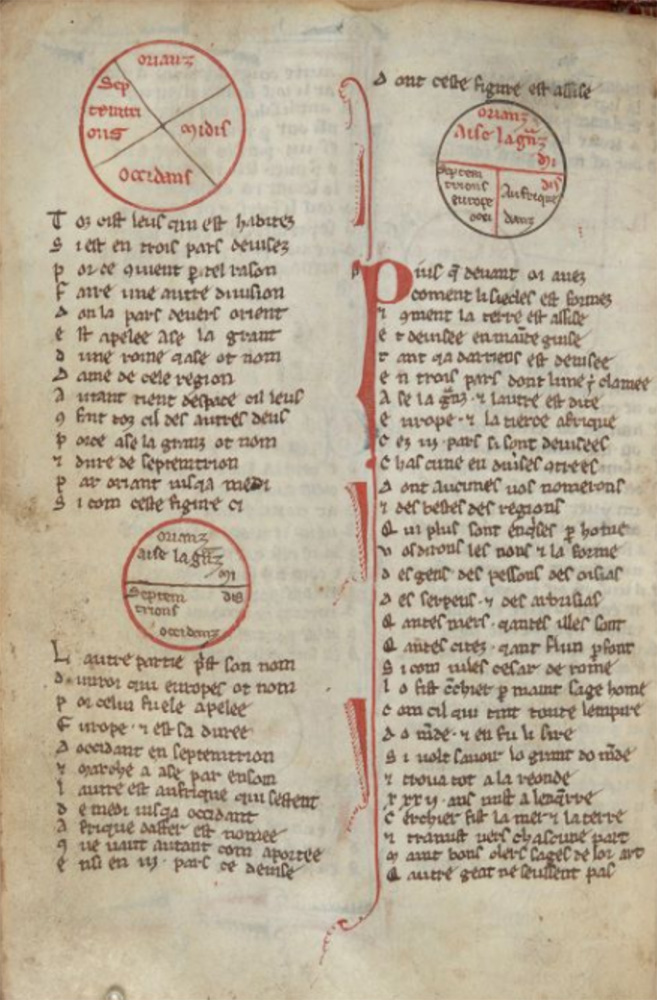 orianz
Sep
temtri
ons
midis
Occidans
Toz cist leus qui est habitez
Si est en trois pars devisez
por ce 9vient p tel raison
Faire une autre division
Don la pars devers orient
est apelee Ase la grant
d une roine qase ot nom
Dame de cele region
Autant tient despace cil leus
9 font toz cil des autres deus
por ce ase la granz ot nom
⁊ dure de septemtrion
par oriant iusqa medi
Si com ceste figure ci
orianz
aise la g̃nz
mi
dis
Septem
trions
occidanz
Lautre partie p̃st son nom
dun roi qui europes ot nom
por celui fu ele apelee
Europe · ⁊ est sa duree
Doccidant en septemtrion
⁊ marche a ase par ensom
lautre est aufrique qui sestent
de medi iusqa occidant
Afrique daffer est nomee
9 ue vaut autant com aportee
ensi en iij · pars ce devise
Dont ceste figure est assise
orianz
Aise la g̃nz
mi
dis
Septem
trions
europe
occi
Aufrique
danz
Puis q̃ devant oi avez
coment li siecles est formez
⁊ 9ment la terre est assise
et devisee en mainte guise
tant qa darriens est devisee
en trois pars dont lune ẏ clamee
Ase la g̃nz · ⁊ lautre est dite
europe · ⁊ la tierce afrique
Cez iij · pars si sont devisees
Chascune en diverses 9trees
Dont aucunes vos nomerons
⁊ des bestes des regions
Qui plus sont 9verses p
vos dirons les nons ⁊ la forme
des gens des pessons des oisiaus
Des serpens · ⁊ des
Qantes mers · qantes illes sont
Qantes citez · qant flun p font
Si com iules cesar de rome
lo fist c̃chier p maint sage home
com cil qui tint toute lempire
Do m̃de · ⁊ en fu li sire
Si volt savoir lo grant do m̃de
⁊ trova tot a la reonde
xxxij · ans mist a lenq̃rre
Cerchier fist la mer ⁊ la terre
⁊ tramist vers chascune part
maint bons clers sages de lor art
Q autre gent ne seussent pas